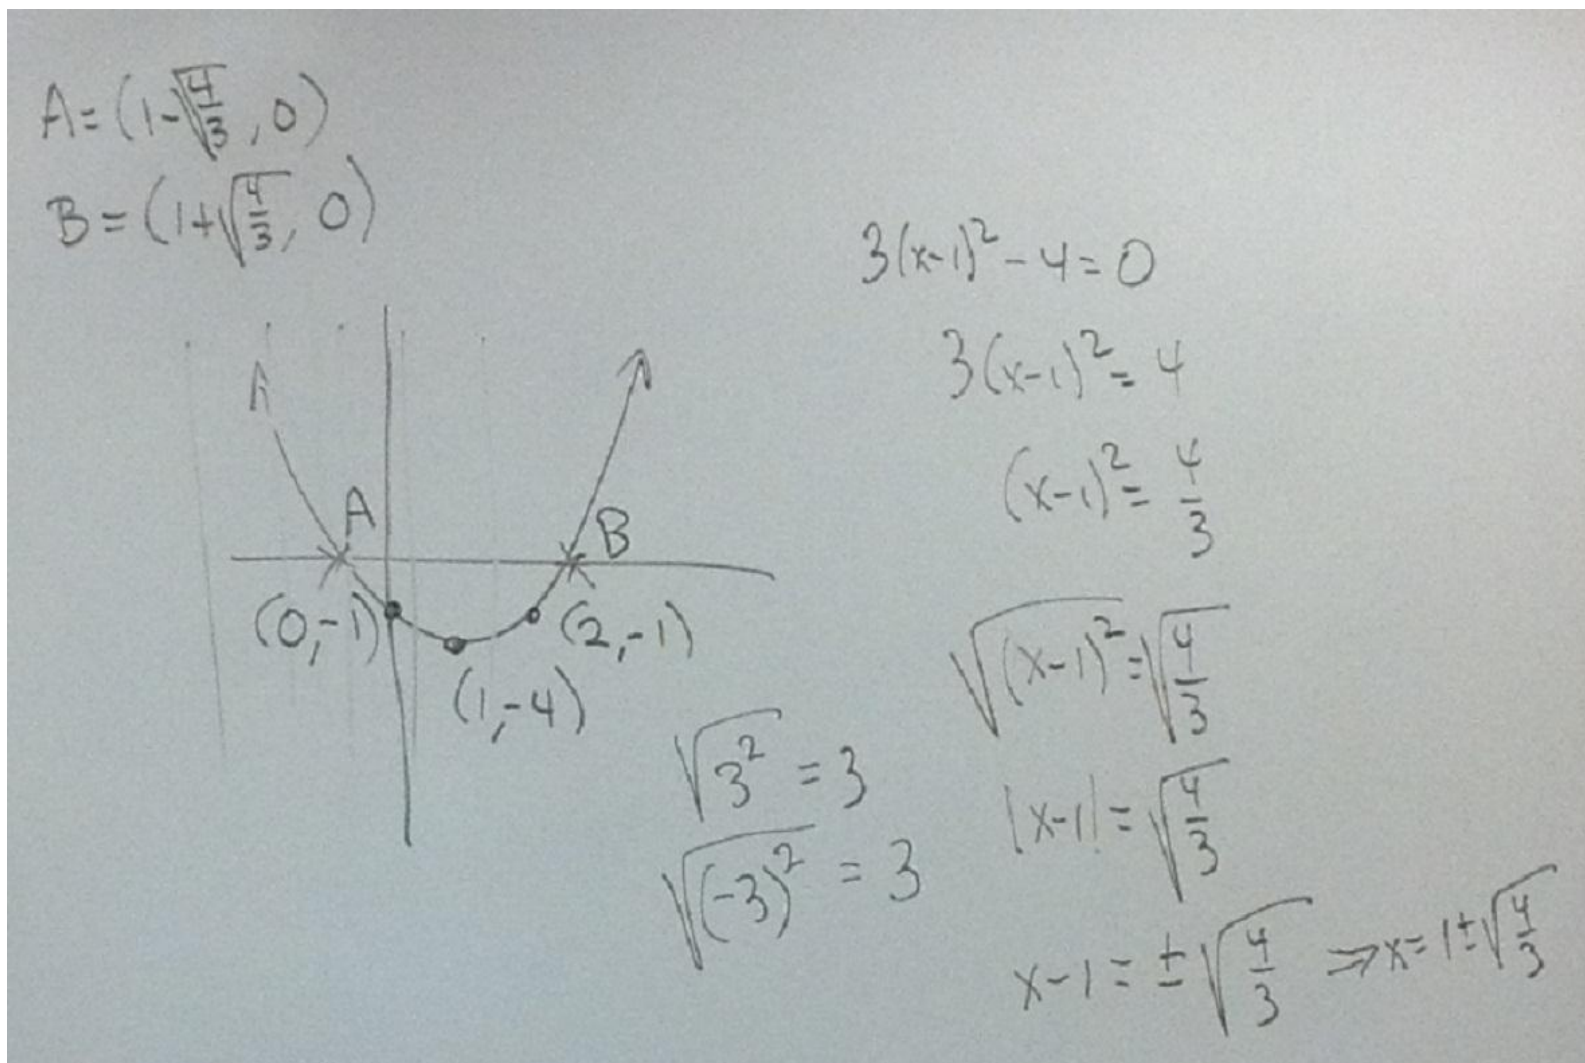 A=(1-√(4/3), 0)
B=(1+√(4/3), 0)
A
B
(0,-1)
(2,-1)
(1,-4)
√(3²) = 3
√((-3)²) = 3
3(x-1)² - 4 = 0
3(x-1)² = 4
(x-1)² = 4/3
√((x-1)²) = √(4/3)
|x-1| = √(4/3)
x-1 = ±√(4/3) ⇒ x = 1±√(4/3)